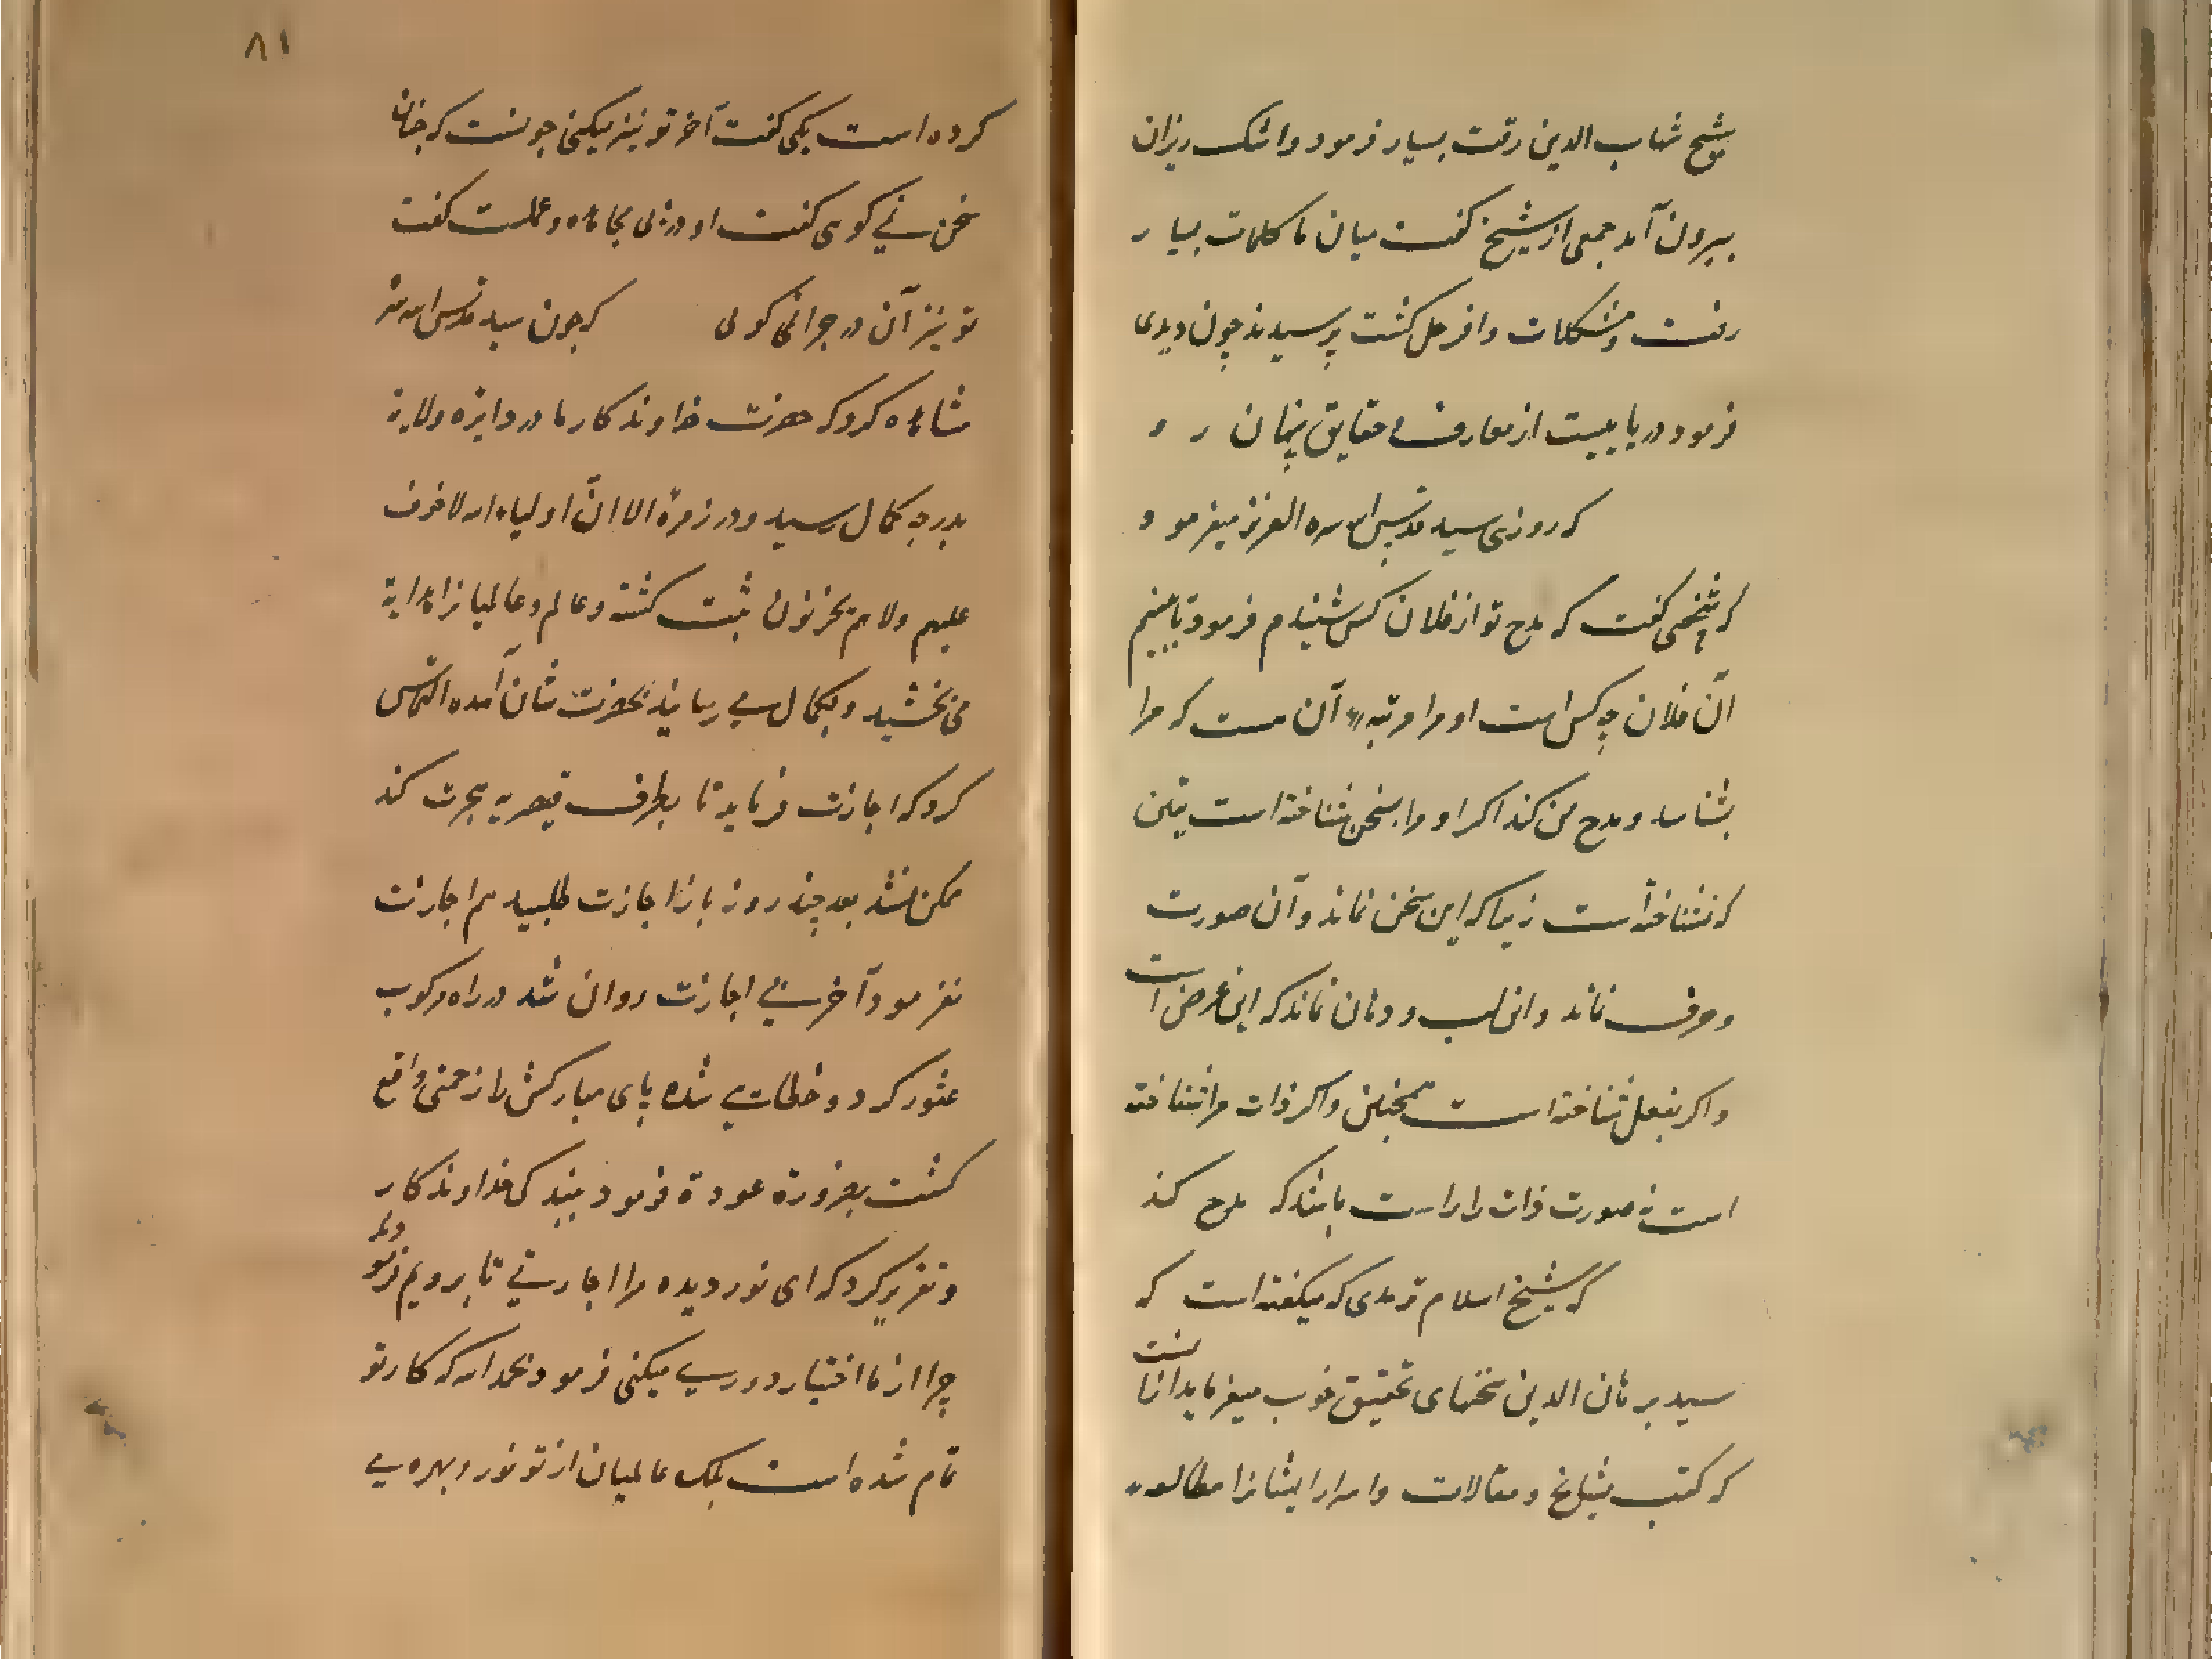 شیخ شهاب الدین رقت بسیار فرمود و اشک ریزان
بیرون آمد جمعی از شیخ گفت میان ما کلمات بسیار
رفت و مشکلات وافر حل گشت پرسیدند چون دیدی
فرمود دریاییست از معارف حقایق پنهان ر و
که روزی سید قدس الله سره العزیز میفرمود
که شخصی گفت که مدح تو از فلان کس شنیدم فرمود تا ببینم
آن فلان چه کس است او را مرتبه آن هست که مرا
بشناسد و مدح من کند اگر او مرا بسخن شناخته است یقین
که نشناخته است زیرا که این سخن نماند و آن صورت
و حرف نماند و این لب و دهان نماند که این عرض است
و اگر بفعل شناخته است همچنین و اگر ذات مرا شناخته
است نه صورت ذات را راست باشد که مدح کند
که شیخ اسلام ترمدی که میگفته است که
سید برهان الدین سخنهای تحقیق خوب میفرماید ازآنست
که کتب مشایخ و مقالات و اسرار ایشانرا مطالعه
۸۱
کرده است یکی گفت آخر تو نیز میکنی چونست که چنان
سخن نمی گویی گفت او در پی مجاهده و عملست گفت
تو نیز آن در چرا نمی گویی که چون سید قدس الله سره
مشاهده کرد که حضرت خداوندگار ما در دایره ولایة
بدرجه کمال رسید و در زمرهٔ الا ان اولیاء الله لا خوف
علیهم ولا هم یحزنون ثبت گشته و عالم و عالمیانرا هدایة
می بخشید و بکمال می رساند بحضرت شان آمده التماس
کرد که اجازت فرماید تا بطرف قیصریه هجرت کند
ممکن نشد بعد چند روز باز اجازت طلبید هم اجازت
نفرمود آخر بی اجازت روان شد در راه مرکوب
عثور کرد و خطایی شده پای مبارکش را زحمتی واقع
گشت بضرورة عودة فرمود ببندگی خداوندگار
و تقریر کرد که ای نور دیده مرا اجازتی تا برویم فرمود که
چرا از ما اختیار دوری میکنی فرمود بحمد الله که کار تو
تمام شده است بلک عالمیان از تو نور و بهره می